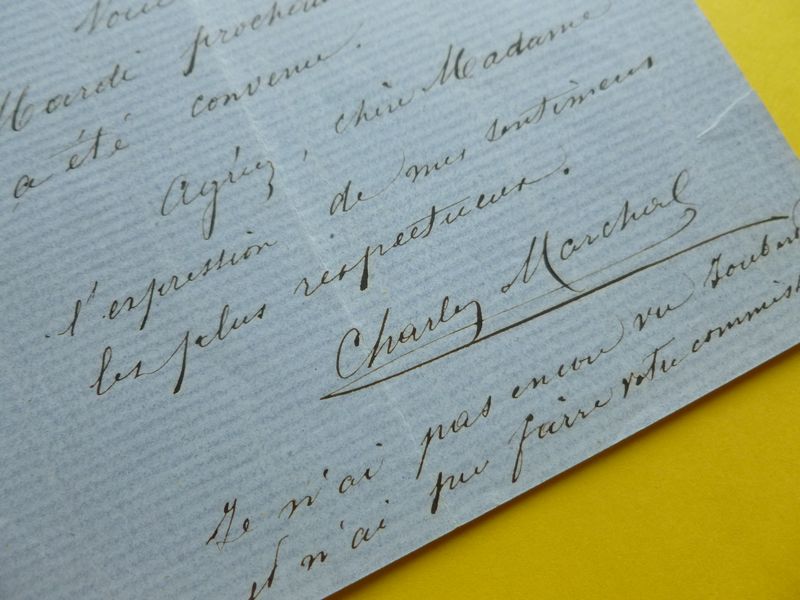 Mardi prochain
a été convenu.
Agréez, chère Madame
l'expression de mes sentimens
les plus respectueux.
Charles Marchal
Je n'ai pas encore vu
et n'ai pu faire votre